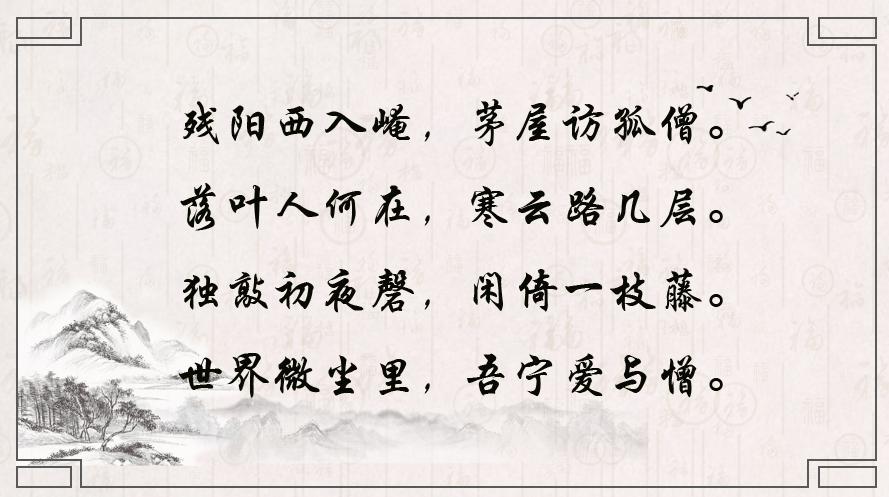 残阳西入崦，茅屋访孤僧。
落叶人何在，寒云路几层。
独敲初夜磬，闲倚一枝藤。
世界微尘里，吾宁爱与憎。